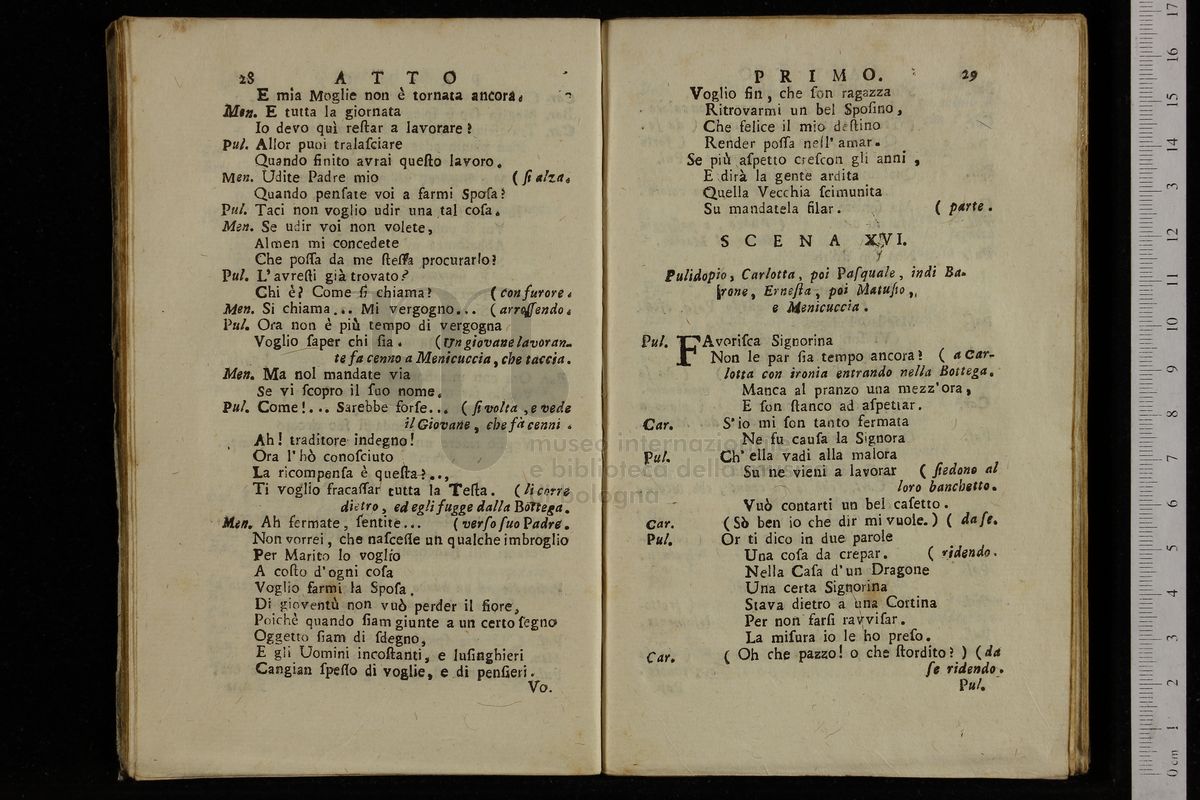 28 ATTO
E mia Moglie non è tornata ancora.
Men. E tutta la giornata
Io devo quì reſtar a lavorare?
Pul. Allor puoi tralaſciare
Quando finito avrai queſto lavoro.
Men. Udite Padre mio (ſi alza.
Quando penſate voi a farmi Spoſa?
Pul. Taci non voglio udir una tal coſa.
Men. Se udir voi non volete,
Almen mi concedete
Che poſſa da me ſteſſa procurarlo?
Pul. L'avreſti già trovato?
Chi è? Come ſi chiama? (con furore.
Men. Si chiama... Mi vergogno... (arroſſendo.
Pul. Ora non è più tempo di vergogna
Voglio ſaper chi ſia. (Un giovane lavoran-
te fa cenno a Menicuccia, che taccia.
Men. Ma nol mandate via
Se vi ſcopro il ſuo nome.
Pul. Come!... Sarebbe forſe... (ſi volta, e vede
il Giovane, che fà cenni.
Ah! traditore indegno!
Ora l'hò conoſciuto
La ricompenſa è queſta?...
Ti voglio fracaſſar tutta la Teſta. (li corre
dietro, ed egli fugge dalla Bottega.
Men. Ah fermate, ſentite... (verſo ſuo Padre.
Non vorrei, che naſceſſe un qualche imbroglio
Per Marito lo voglio
A coſto d'ogni coſa
Voglio farmi la Spoſa.
Di gioventù non vuò perder il fiore,
Poichè quando ſiam giunte a un certo ſegno
Oggetto ſiam di ſdegno,
E gli Uomini incoſtanti, e luſinghieri
Cangian ſpeſſo di voglie, e di penſieri.
Vo.
PRIMO. 29
Voglio ſin, che ſon ragazza
Ritrovarmi un bel Spoſino,
Che felice il mio deſtino
Render poſſa nell'amar.
Se più aſpetto creſcon gli anni,
E dirà la gente ardita
Quella Vecchia ſcimunita
Su mandatela filar. (parte.
SCENA XVI.
Pulidopio, Carlotta, poi Paſquale, indi Ba-
rone, Erneſta, poi Matuſio,
e Menicuccia.
Pul. FAvoriſca Signorina
Non le par ſia tempo ancora? (a Car-
lotta con ironia entrando nella Bottega.
Manca al pranzo una mezz'ora,
E ſon ſtanco ad aſpettar.
Car. S'io mi ſon tanto fermata
Ne fu cauſa la Signora
Pul. Ch'ella vadi alla malora
Su ne vieni a lavorar (ſiedono al
loro banchetto.
Vuò contarti un bel caſetto.
Car. (Sò ben io che dir mi vuole.) (da ſe.
Pul. Or ti dico in due parole
Una coſa da crepar. (ridendo.
Nella Caſa d'un Dragone
Una certa Signorina
Stava dietro a una Cortina
Per non farſi ravviſar.
La miſura io le ho preſo.
Car. (Oh che pazzo! o che ſtordito?) (da
ſe ridendo.
Pul.
museo internazionale
e biblioteca della musica
di bologna